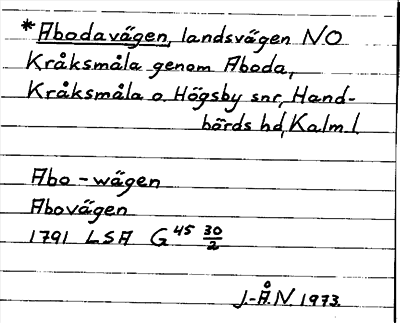 *Abodavägen, landsvägen NO
Kråksmåla genom Aboda,
Kråksmåla o. Högsby snr, Hand-
börds hd, Kalm l.
Abo-wägen
Abovägen
1791 LSA G45 30/2
J.-Å.N. 1973.